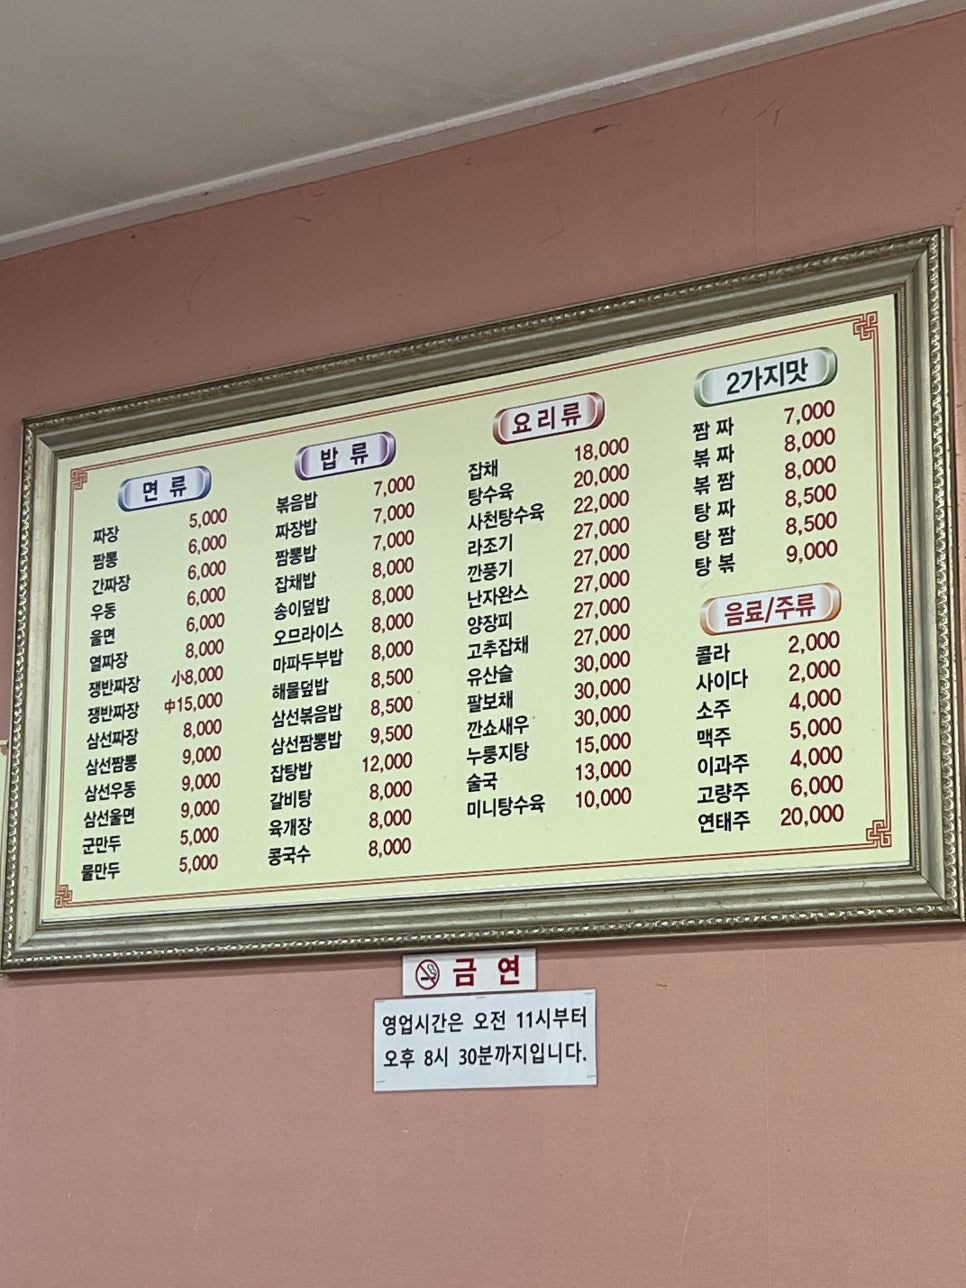 면 류
짜장 5,000
짬뽕 6,000
간짜장 6,000
우동 6,000
울면 6,000
열짜장 8,000
쟁반짜장 小8,000
쟁반짜장 中15,000
삼선짜장 8,000
삼선짬뽕 9,000
삼선우동 9,000
삼선울면 9,000
군만두 5,000
물만두 5,000
밥 류
볶음밥 7,000
짜장밥 7,000
짬뽕밥 7,000
잡채밥 8,000
송이덮밥 8,000
오므라이스 8,000
마파두부밥 8,000
해물덮밥 8,500
삼선볶음밥 8,500
삼선짬뽕밥 9,500
잡탕밥 12,000
갈비탕 8,000
육개장 8,000
콩국수 8,000
요 리 류
잡채 18,000
탕수육 20,000
사천탕수육 22,000
라조기 27,000
깐풍기 27,000
난자완스 27,000
양장피 27,000
고추잡채 27,000
유산슬 30,000
팔보채 30,000
깐쇼새우 30,000
누룽지탕 15,000
술국 13,000
미니탕수육 10,000
2가지맛
짬 짜 7,000
볶 짜 8,000
볶 짬 8,000
탕 짜 8,500
탕 짬 8,500
탕 볶 9,000
음료/주류
콜라 2,000
사이다 2,000
소주 4,000
맥주 5,000
이과주 4,000
고량주 6,000
연태주 20,000
금 연
영업시간은 오전 11시부터
오후 8시 30분까지입니다.